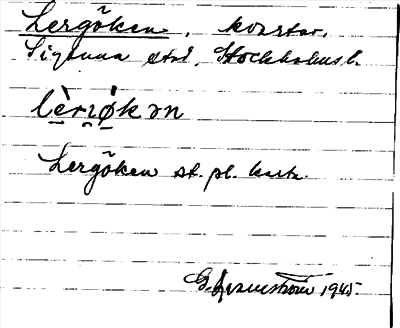 Lergöken, kvarter.
Sigtuna stad, Stockholms l.
lèrɿø̀kən
Lergöken st. pl. karta.
G. Franström 1945